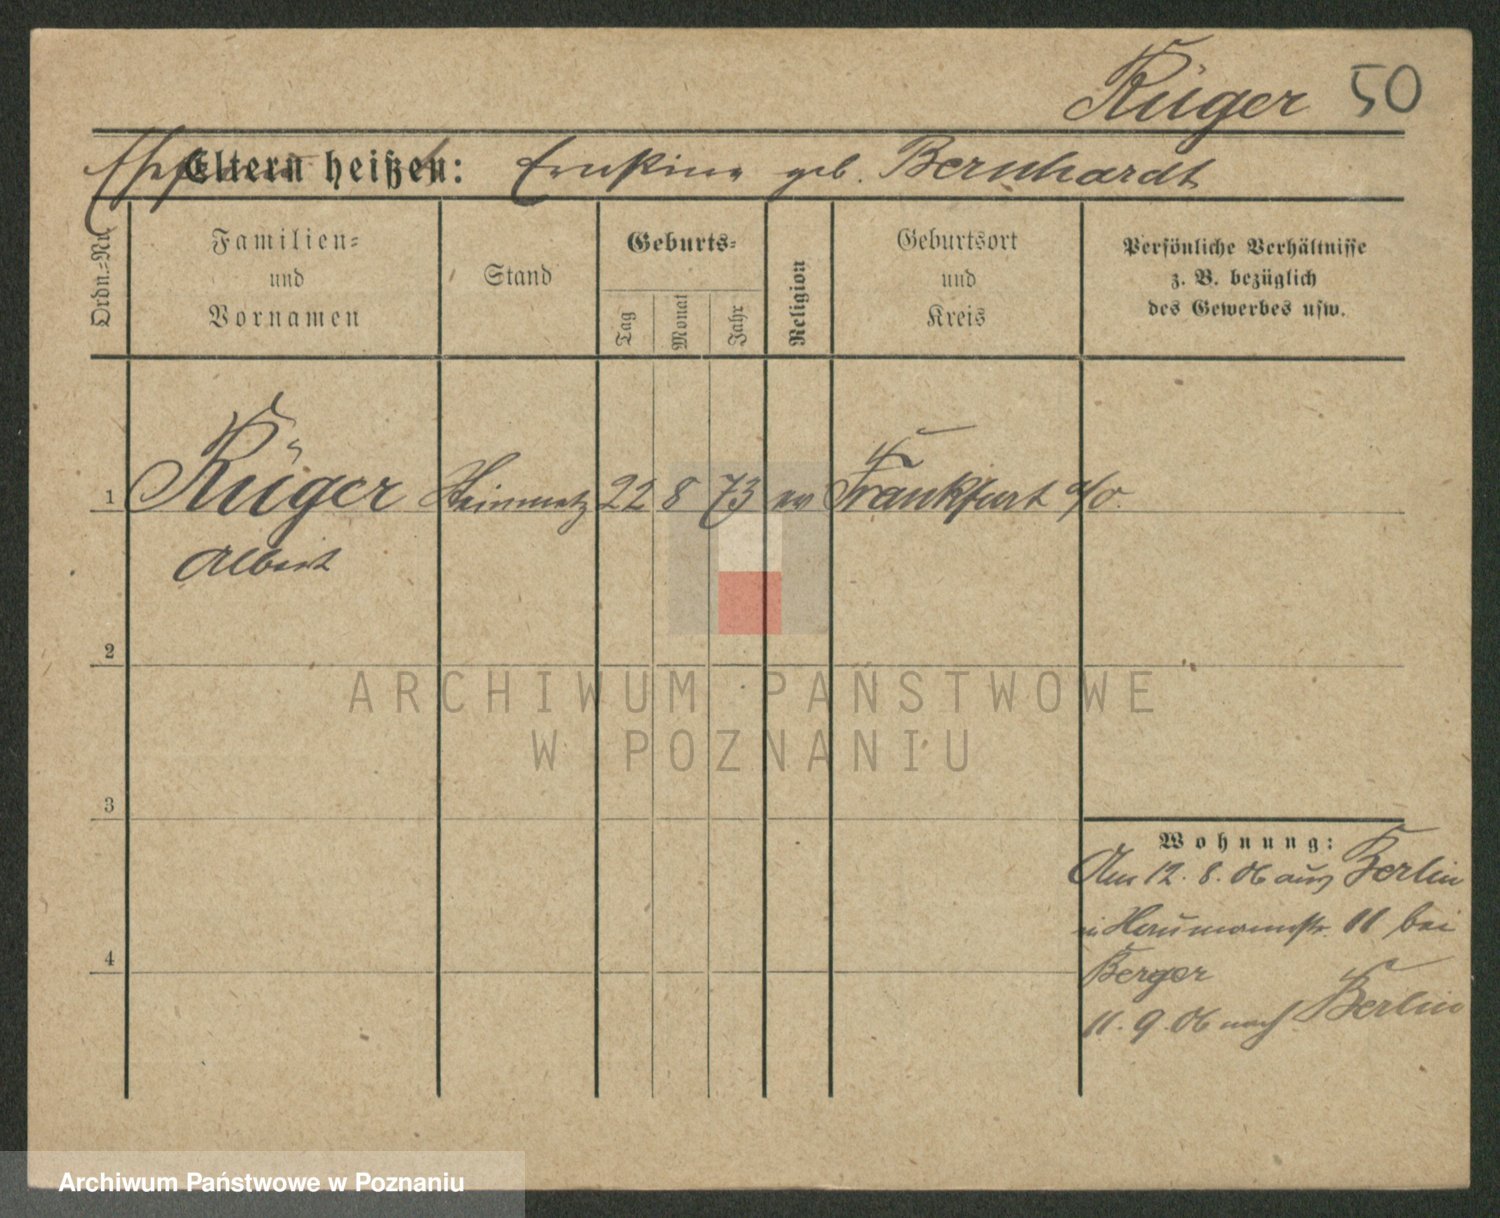 Rüger 50
Eltern heißen: Ernstine geb. Bernhardt
Ordn.-Nr.
Familien-
und
Vornamen
Stand
Geburts-
Tag
Monat
Jahr
Religion
Geburtsort
und
Kreis
Persönliche Verhältnisse
z. B. bezüglich
des Gewerbes usw.
1 Rüger Steinmetz 22 8 73 ev Frankfurt a/o.
Albert
2
ARCHIWUM PAŃSTWOWE
W POZNANIU
3
Wohnung:
Am 12. 8. 06 aus Berlin
in 11 bei
4 Berger
11. 9. 06 nach Berlin
Archiwum Państwowe w Poznaniu